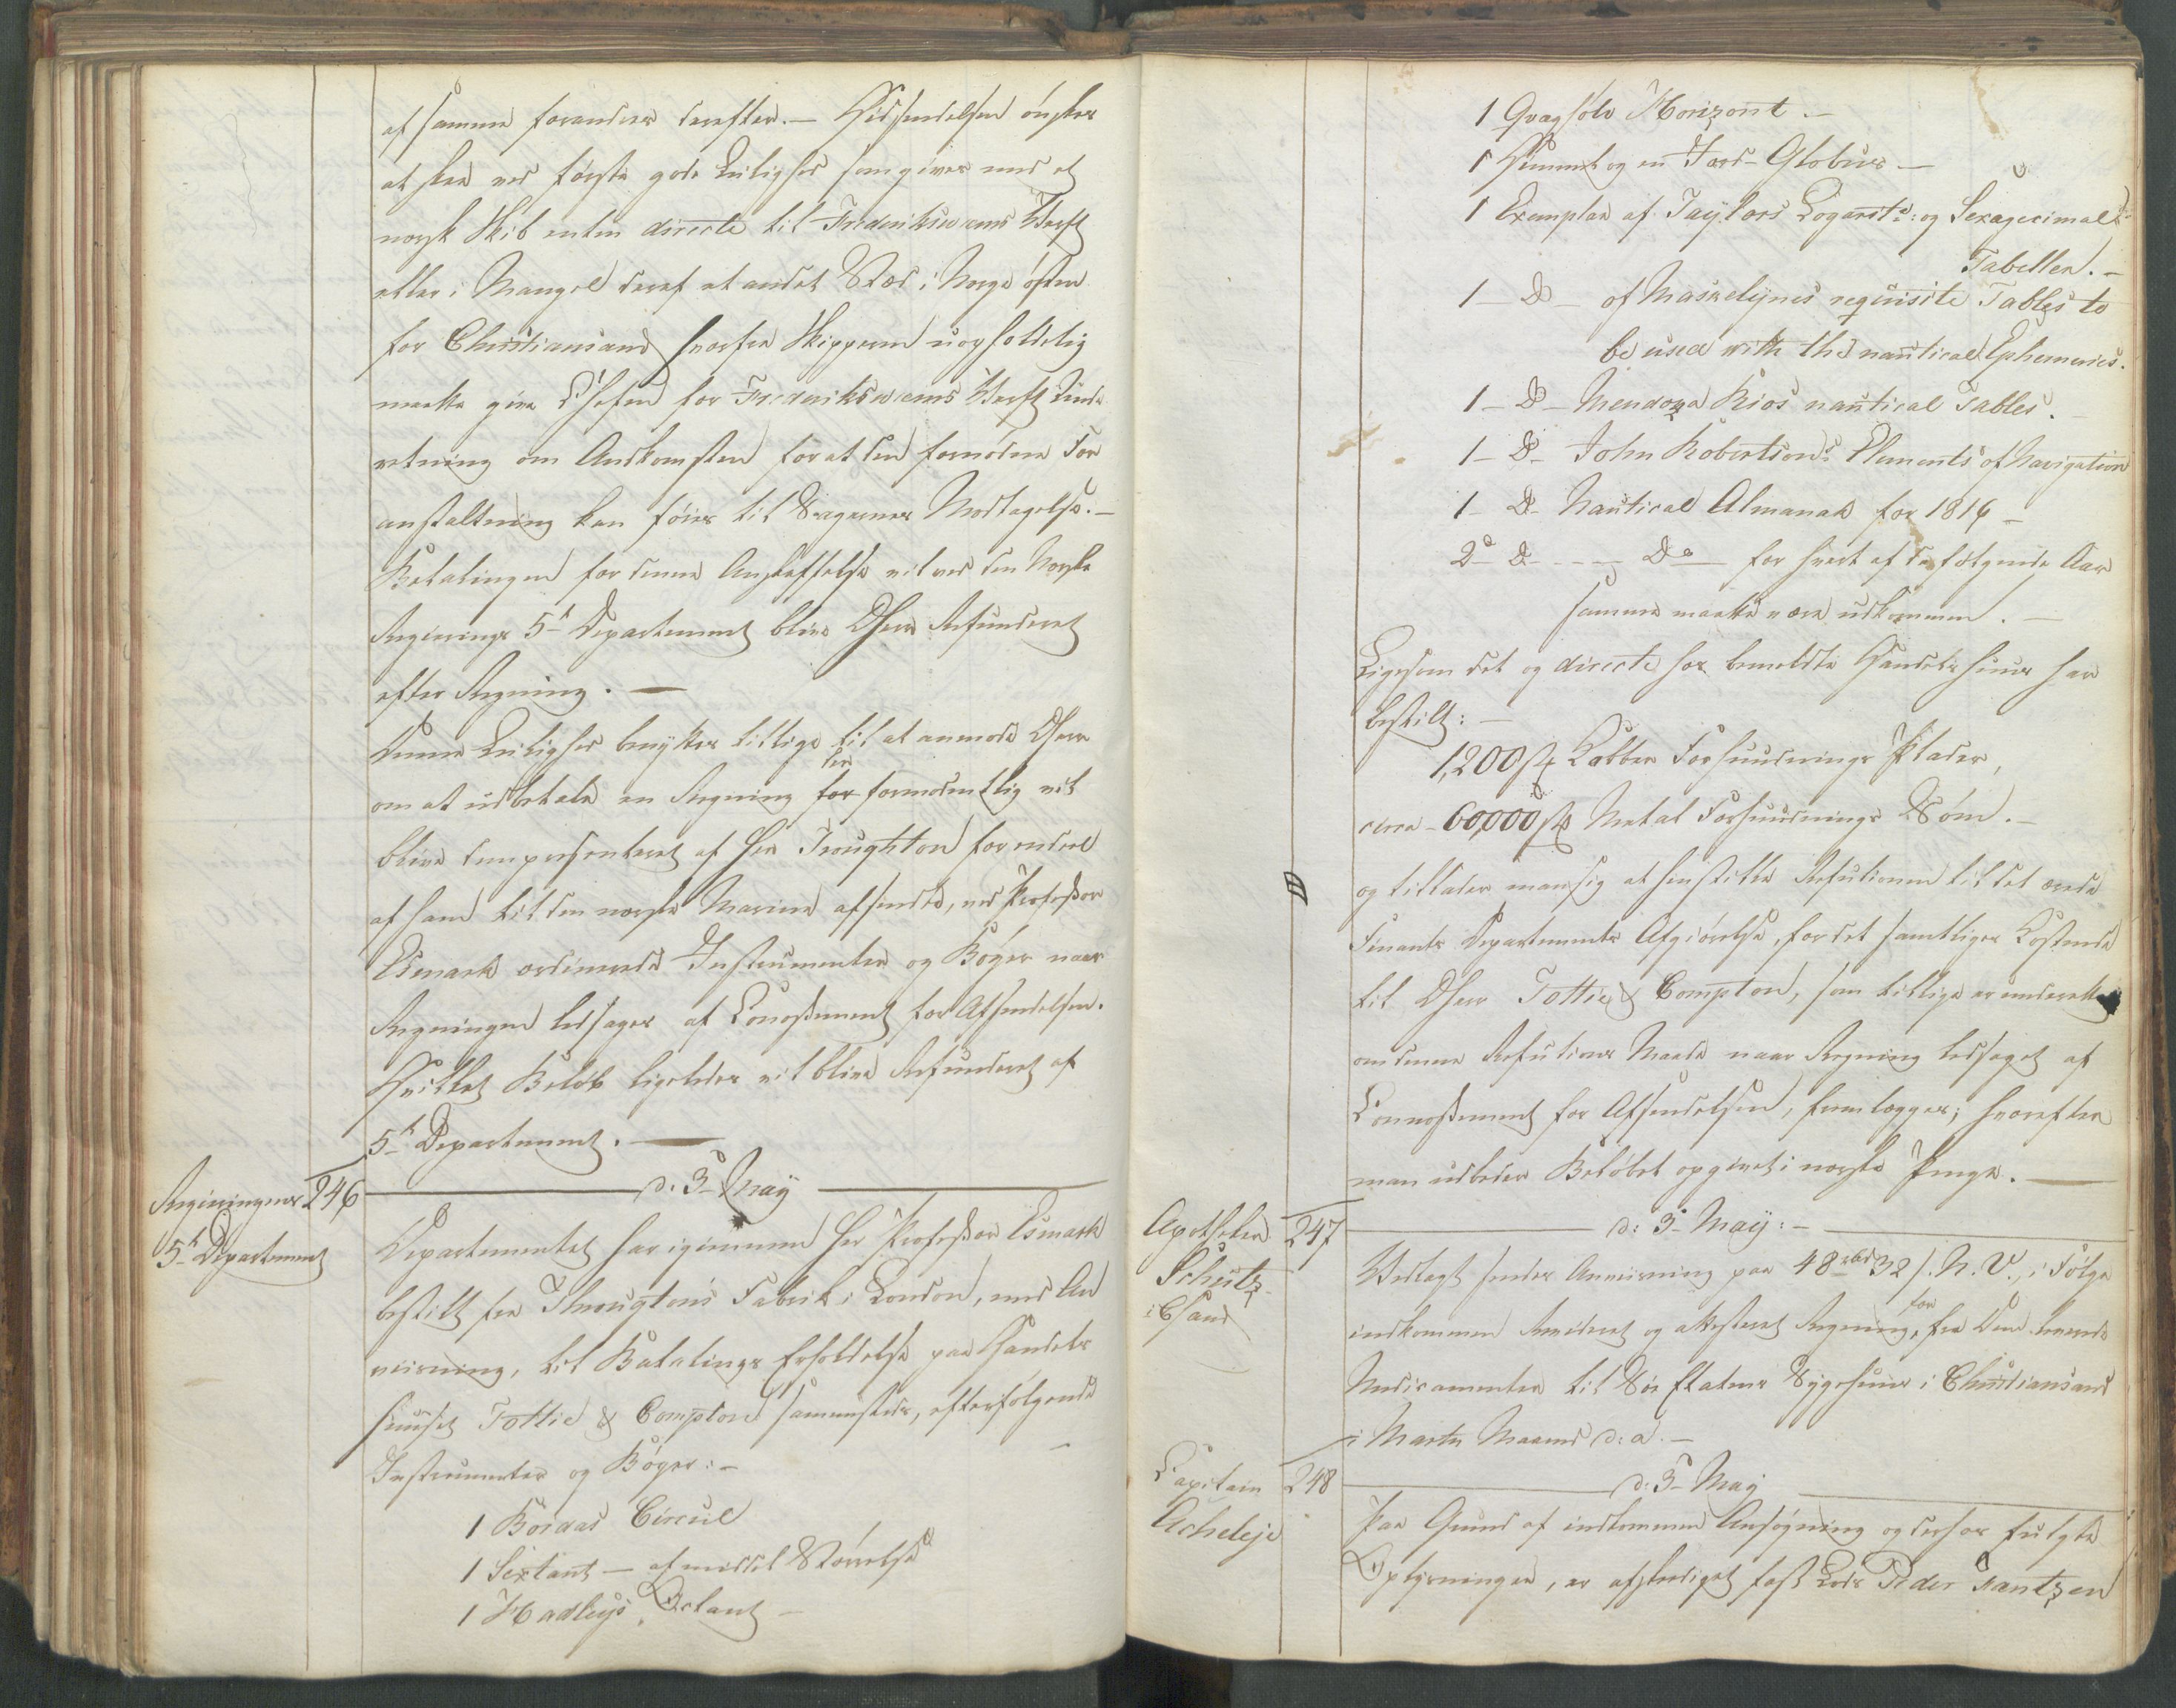 af samme forandres derefter. — Hidsendelsen ønskes
at skee ved første gode Leilighed som gives med et
norsk Skib enten directe til Frederiksværns Værft
eller i Mangel deraf et andet Sted i Norge østen
for Christiansand hvorfra Skipperen uopholdelig
maatte give Chefen for Frederiksværns Værft Under
retning om Ankomsten for at den fornødne For
anstaltning kan føies til Sagernes Modtagelse. —
Betalingen for denne Anskaffelse vil ved den Norske
Regjerings 5t Departement blive DHerr Refunderet
efter Regning. —
Denne Leilighed benyttes tillige til at anmode DHerr
om at udbetale en Regning der formodentlig vil
blive dem presenteret af Her Troughton for endeel
af ham til den norske Marine afsendte, ved Professor
Esmark ordinerede Instrumenter og Bøger naar
Regningen ledsages af Conossement for Afsendelsen.
Hvilket Beløb ligeledes vil blive Refunderet af
5t Departement. —
Regieringens 246
d. 3 May
5t Departement
Departementet har igiennem Her Professor Esmark
bestilt fra Througtons Fabrik i London, med An
viisning, til Betalings Erholdelse paa Handels
huuset Tottie & Compton sammesteds, efterfølgende
Instrumenter og Bøger: —
1 Bordas Circul
1 Sextant — af middel Størrelse
1 Hadleys Octant —
1 Qvægsølv Horizont. —
1 Himmel og en Jord-Globus —
1 Exemplar af Taylors Logarit: og Sexagecimal
Tabeller. —
1 — D — of Maskelynes requisite Tables to
be used with the nautical Ephemeries.
1 — D — Mendoza Rios nautical Tables.
1 — D — John Robertsons Elements of Navigation
1 — D — Nautical Almanak for 1816 —
2 D — — D — for hvert af de følgende Aar
samme maatte være udkommen. —
Ligesom det og directe hos bemeldte Handelshuus har
bestilt: —
1,200 st Kobber Forhuudnings Plader,
circa — 60,000 st Metal Forhuudnings Søm. —
og tillader man sig at henstille Refutionen til det ærede
Finants Departements Afgiørelse, for det samtliges Kostende
til DHerr Tottie & Compton, som tillige er underrettet
om denne Refutions Maade naar Regning ledsaget af
Connossement for Afsendelsen, fremlægges; hvorefter
man udbeder Beløbet opgivet i norske Penge. —
Apotheker 247
d: 3 May: —
Schutz
i C:sand
Vedlagt sendes Anviisning paa 48 rbd 32 s. N. V., i Følge
indkommen Revideret og attesteret Regning, for fra Dem leverede
Medicamenter til Søe Etatens Sygehuus i Christiansand
i Marts Maaned d: a. —
Capitain 248
d: 3 May
Acheleje
Paa Grund af indkommen Ansøgning og derhos fulgte
Oplysninger, er afskediget fast Lods Peder Frantzen